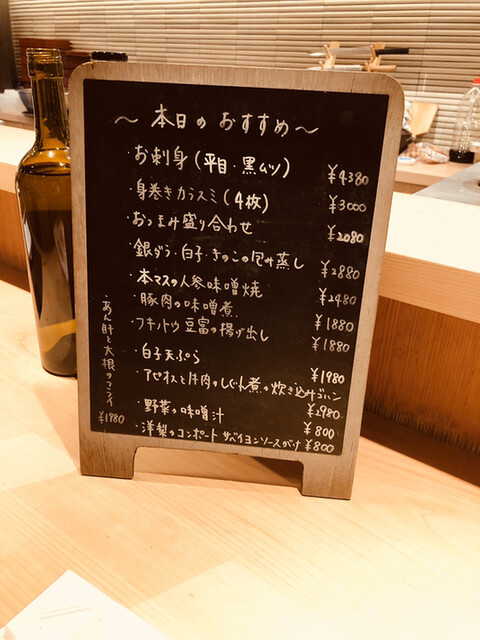 ～ 本日の おすすめ ～
・お刺身 (平目・黒ムツ) ¥4380
・身巻きカラスミ (4枚) ¥3000
・おつまみ盛り合わせ ¥2080
・銀ダラ・白子・きのこの包み蒸し ¥2880
・本マスの人参味噌焼 ¥2480
・豚肉の味噌煮 ¥1880
・フキノトウ豆富の揚げ出し ¥1880
・白子天ぷら ¥1980
の炊き込みゴハン ¥2980
・野菜の味噌汁 ¥800
・洋梨のコンポート サバイヨンソースがけ ¥800
あん肝と大根の
¥1980